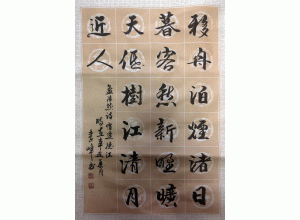 移舟泊煙渚日
暮客愁新野曠
天低樹江清月
近人
孟浩然詩宿建德江